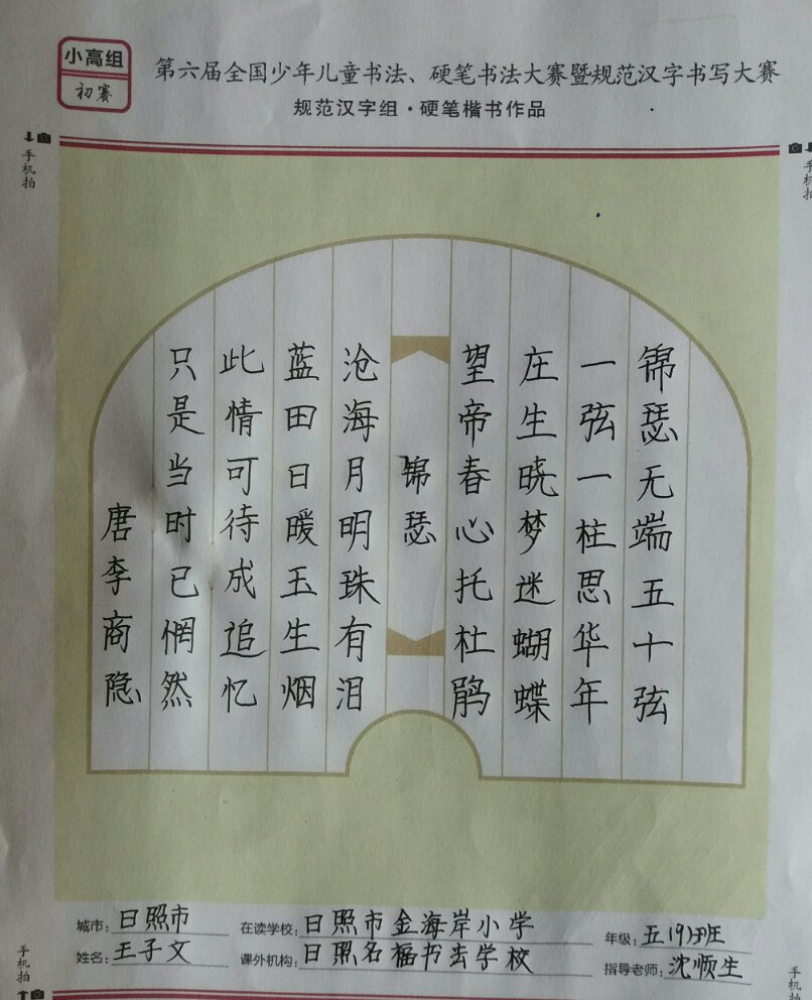 小高组
初赛
第六届全国少年儿童书法、硬笔书法大赛暨规范汉字书写大赛
规范汉字组·硬笔楷书作品
手机拍
手机拍
锦瑟无端五十弦
一弦一柱思华年
庄生晓梦迷蝴蝶
望帝春心托杜鹃
锦瑟
沧海月明珠有泪
蓝田日暖玉生烟
此情可待成追忆
只是当时已惘然
唐李商隐
城市：日照市
在读学校：日照市金海岸小学
年级：五（9）班
姓名：王子文
课外机构：日照名福书法学校
指导老师：沈顺生
手机拍
手机拍